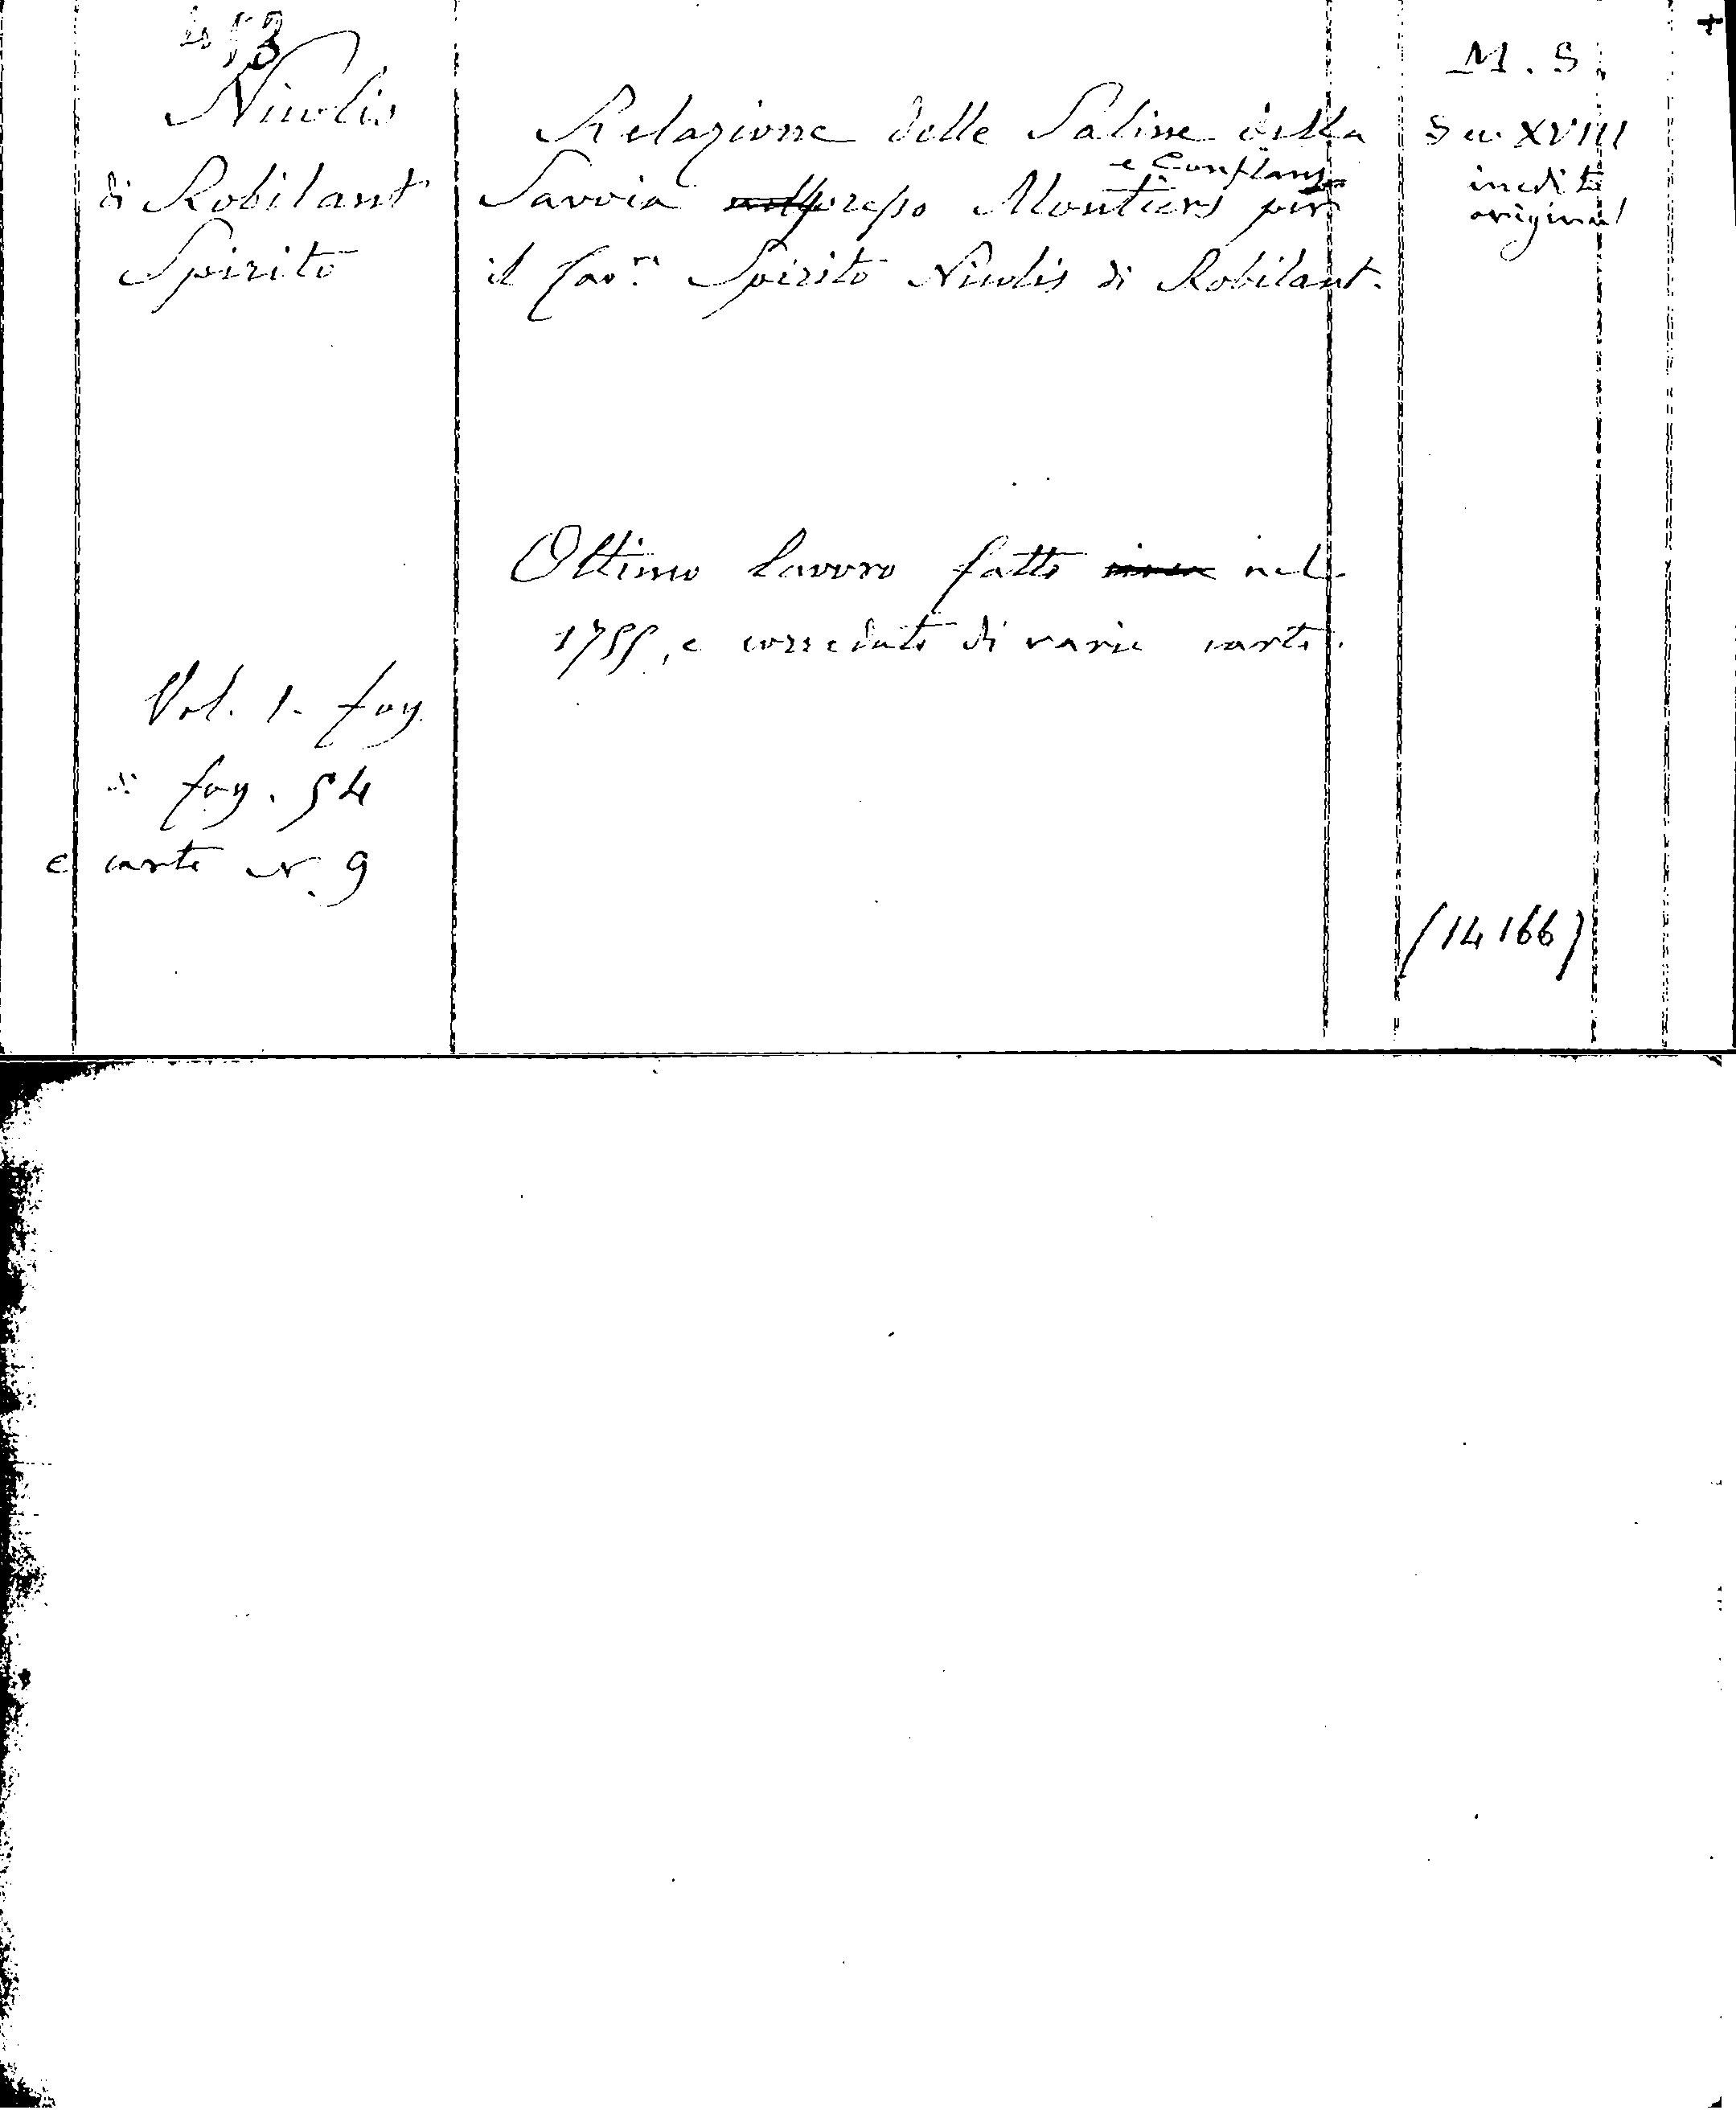 53
Nicolis
di Robilant
Spirito
Vol. 1. fog.
di fog. 54
e carte N. 9
Relazione delle Saline della
e Conflans
Savoia presso Moutiers per
il Cav.r Spirito Nicolis di Robilant.
Ottimo lavoro fatto nel
1755, e corredato di varie carte.
M.S.
Sec. XVIII
inedito
original
(14166)
+